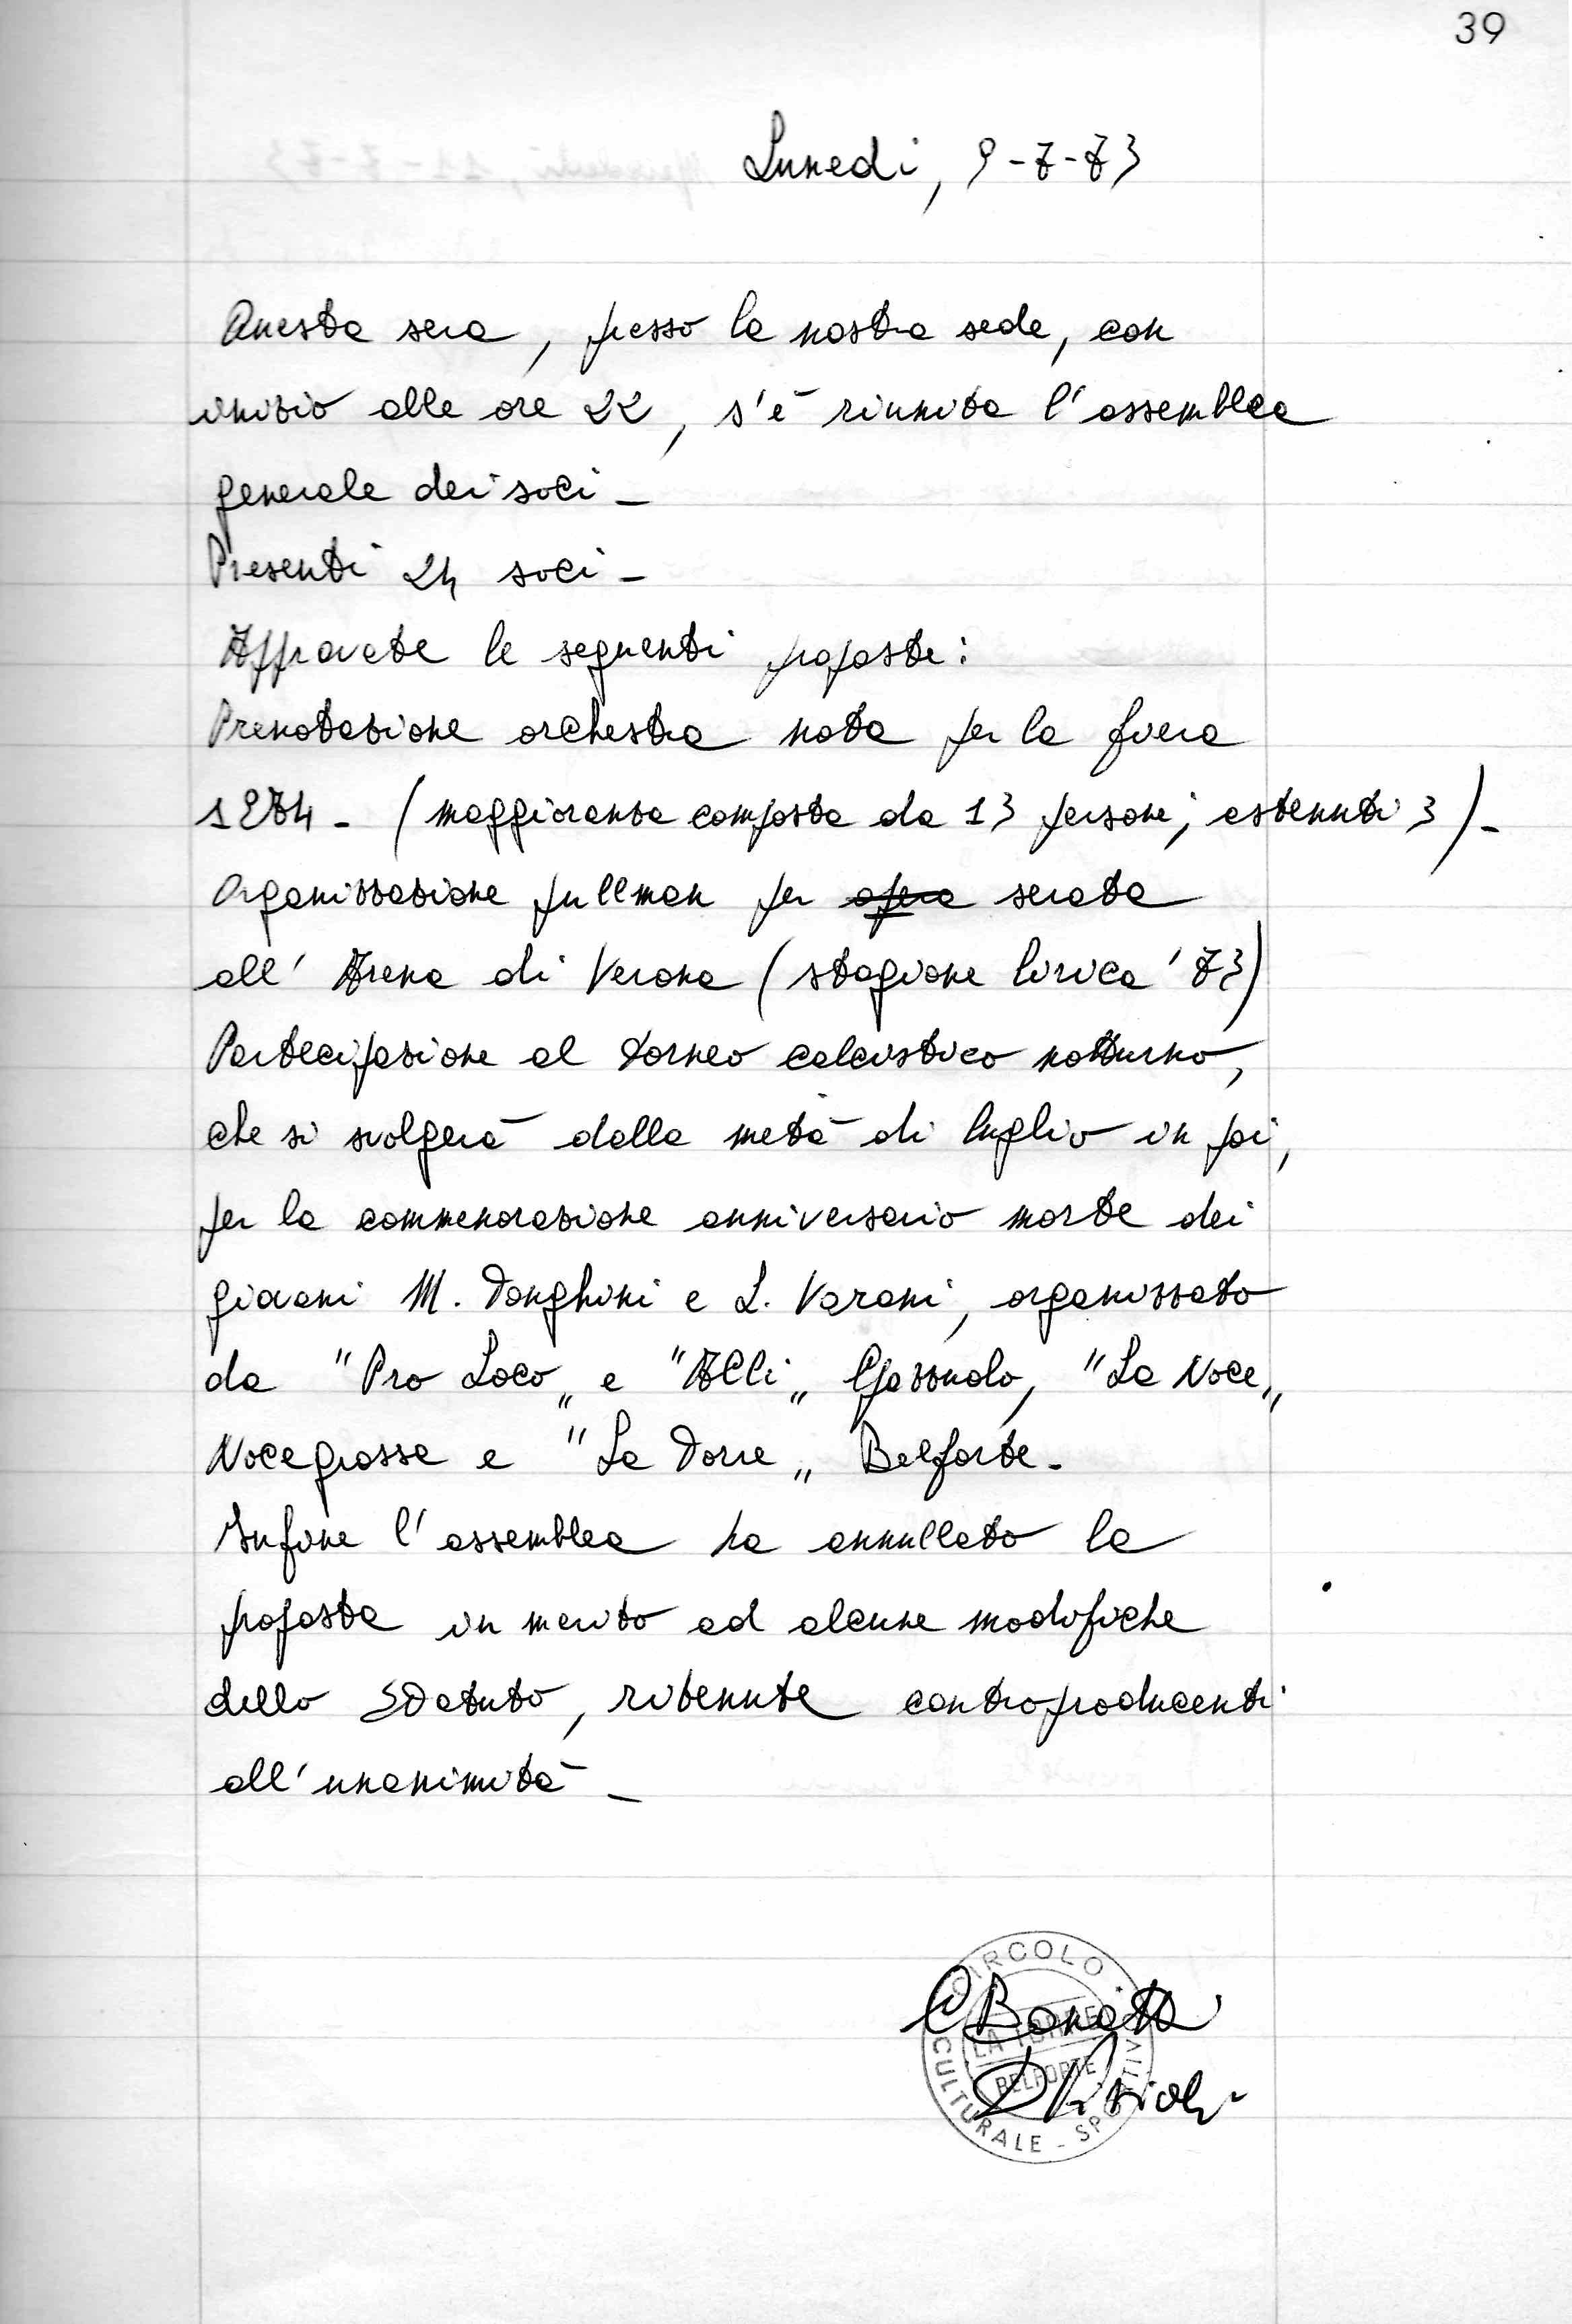 39
Lunedi, 9-7-73
Questa sera, presso la nostra sede, con
inizio alle ore 22, s'è riunita l'assemblea
generale dei soci -
Presenti 24 soci -
Approvate le seguenti proposte:
Prenotazione orchestra nota per la fiera
1974 - (maggioranza composta da 13 persone; astenuti 3) -
Organizzazione pullman per opera serata
all'Arena di Verona (stagione lirica '73)
Partecipazione al torneo calcistico notturno,
che si svolgerà dalla metà di luglio in poi,
per la commemorazione anniversario morte dei
giovani M. Donghini e L. Varani, organizzato
da "Pro Loco" e "Acli" Gazzuolo, "La Noce"
Nocegrossa e "La Torre" Belforte -
Infine l'assemblea ha annullato la
proposta in merito ad alcune modifiche
dello Statuto, ritenute controproducenti
all'unanimità -
CIRCOLO
CULTURALE - SPORTIVO
LA TORRE
BELFORTE